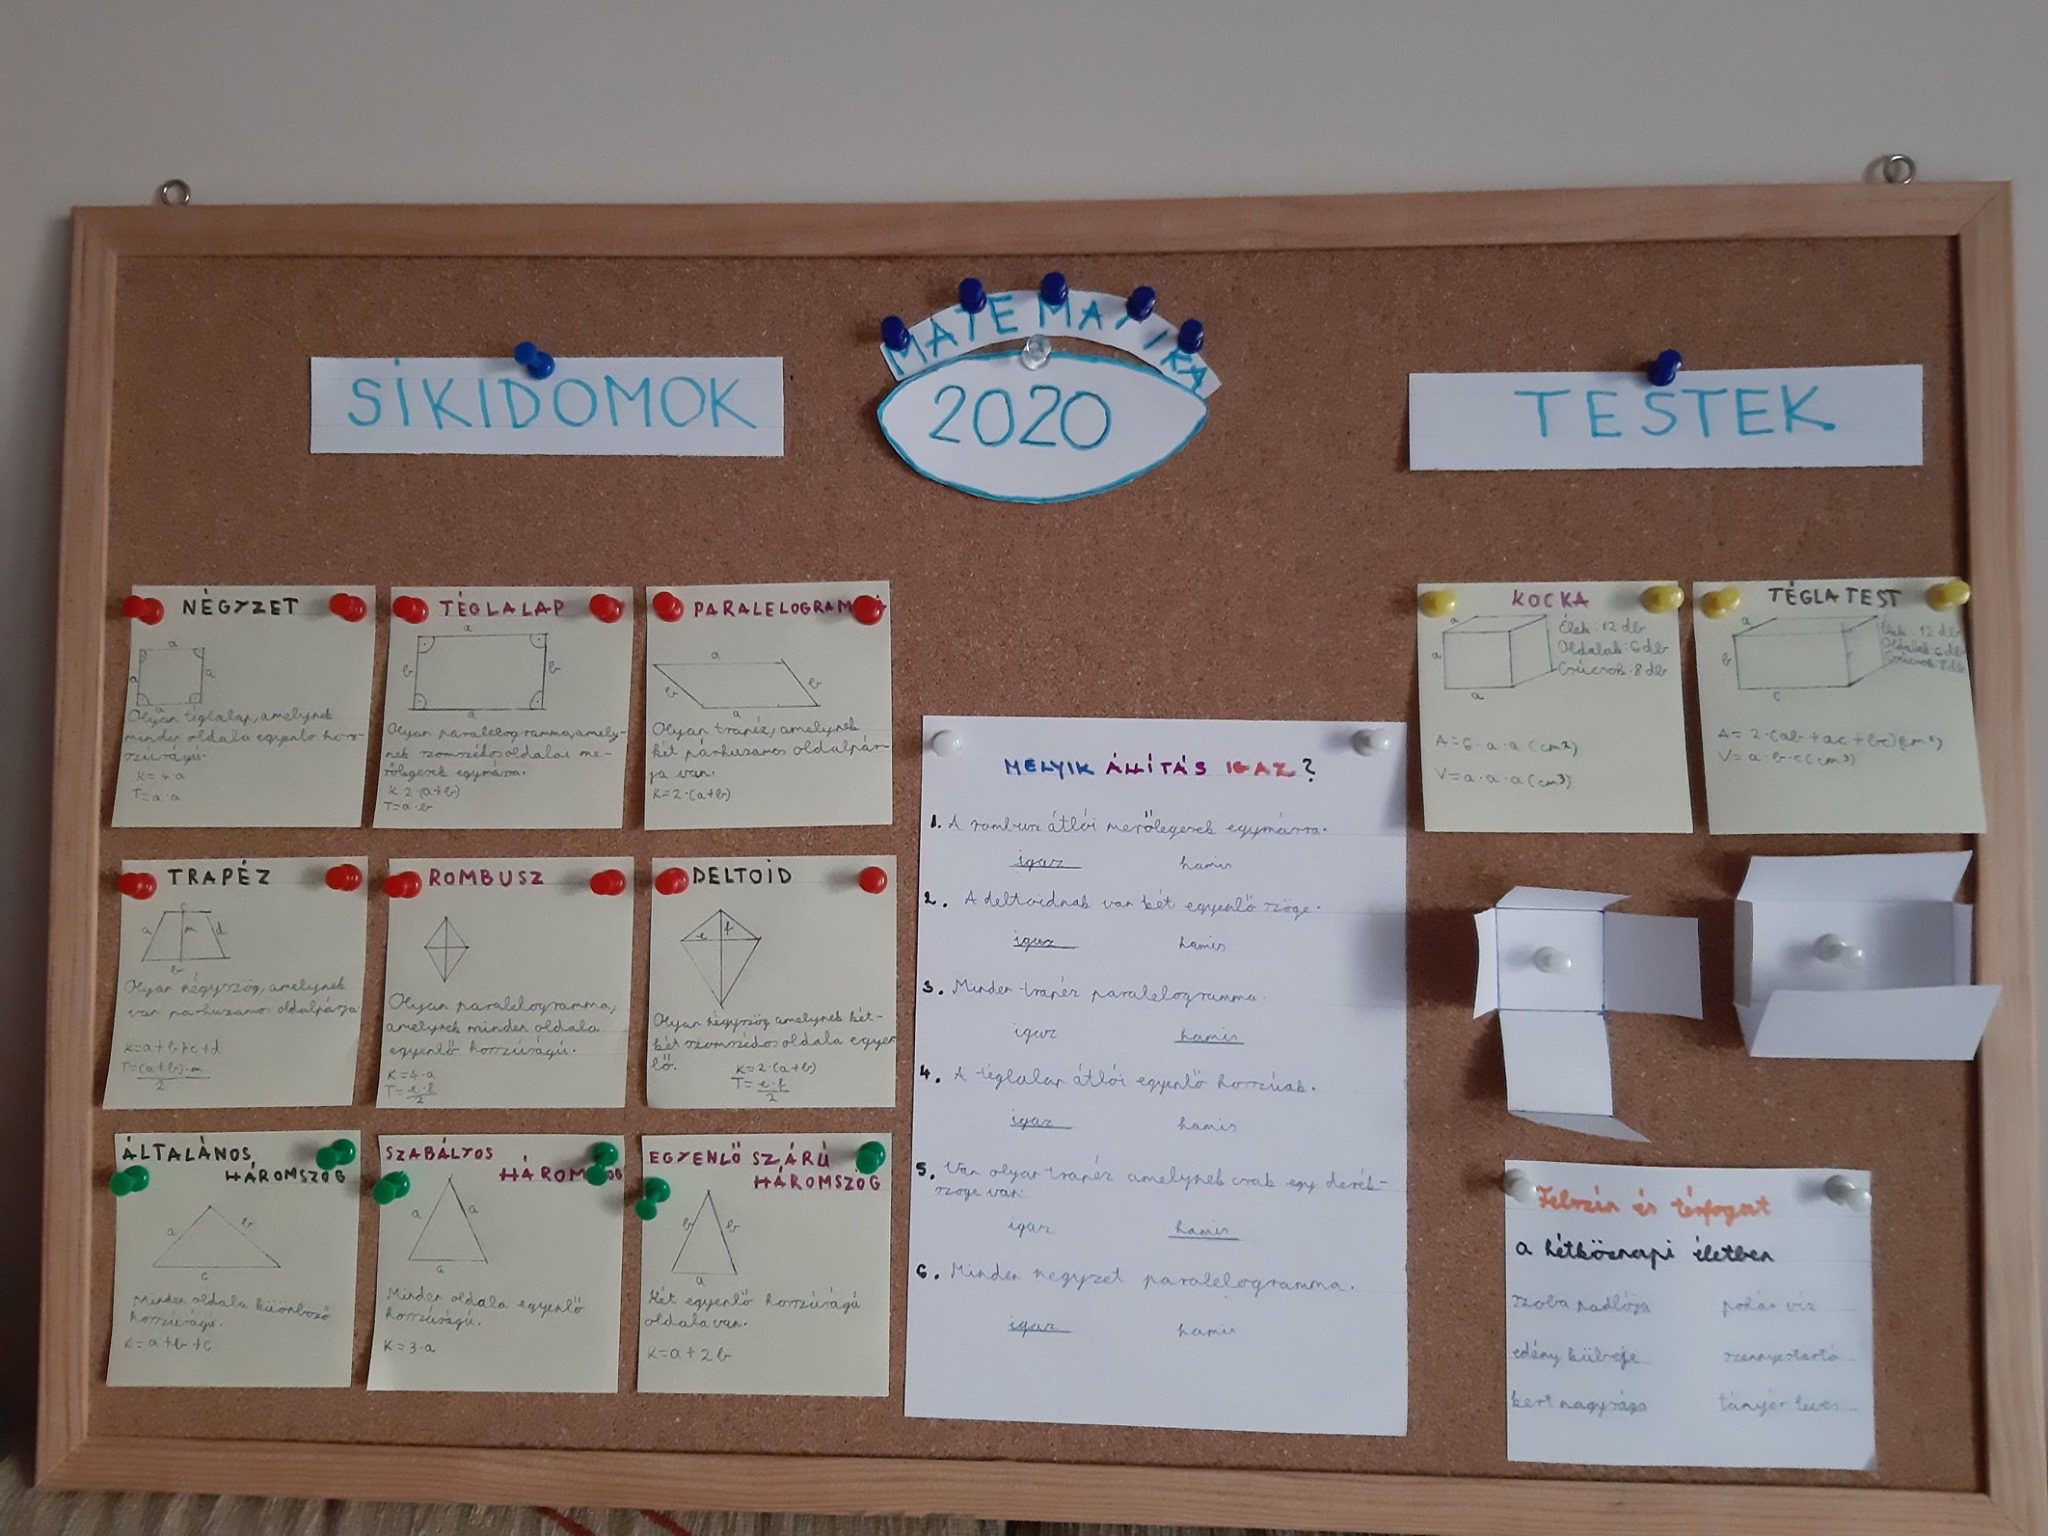 MATEMATIKA
2020
SÍKIDOMOK
TESTEK
NÉGYZET
a
a
a
a
Olyan téglalap, amelynek
minden oldala egyenlő hosz-
szúságú.
K=4·a
T=a·a
TÉGLALAP
a
b
b
a
Olyan paralelogramma, amely-
nek szomszédos oldalai me-
rőlegesek egymásra.
K 2·(a+b)
T=a·b
PARALELOGRAM
a
b
b
a
Olyan trapéz, amelynek
két párhuzamos oldalpár-
ja van.
K=2·(a+b)
TRAPÉZ
c
a
m
d
b
Olyan négyszög, amelynek
van párhuzamos oldalpárja.
K=a+b+c+d
T=(a+b)·m
2
ROMBUSZ
Olyan paralelogramma,
amelynek minden oldala
egyenlő hosszúságú.
K=4·a
T=e·f
2
DELTOID
e
f
Olyan négyszög amelynek két-
két szomszédos oldala egyen
lő.
K=2·(a+b)
T=e·f
2
ÁLTALÁNOS
HÁROMSZÖG
a
b
c
Minden oldala különböző
hosszúságú.
K=a+b+c
SZABÁLYOS
HÁROM
a
a
a
Minden oldala egyenlő
hosszúságú.
K=3·a
EGYENLŐ SZÁRÚ
HÁROMSZÖG
b
b
a
Két egyenlő hosszúságú
oldala van.
K=a+2b
MELYIK ÁLLÍTÁS IGAZ?
1. A rombusz átlói merőlegesek egymásra.
igaz hamis
2. A deltoidnak van két egyenlő szöge.
igaz hamis
3. Minden trapéz paralelogramma.
igaz hamis
4. A téglalap átlói egyenlő hosszúak.
igaz hamis
5. Van olyan trapéz amelynek csak egy derék-
szöge van.
igaz hamis
6. Minden négyzet paralelogramma.
igaz hamis
KOCKA
a
a
a
Élek: 12 db
Oldalak: 6 db
Csúcsok: 8 db
A=6·a·a (cm²)
V=a·a·a (cm³)
TÉGLATEST
a
b
c
Élek: 12 db
Oldalak: 6 db
Csúcsok: 8 db
A=2·(ab+ac+bc)(cm²)
V=a·b·c (cm³)
Felszín és térfogat
a hétköznapi életben
szoba padlója pohár víz
edény külseje szennyestartó
kert nagysága tányér leves